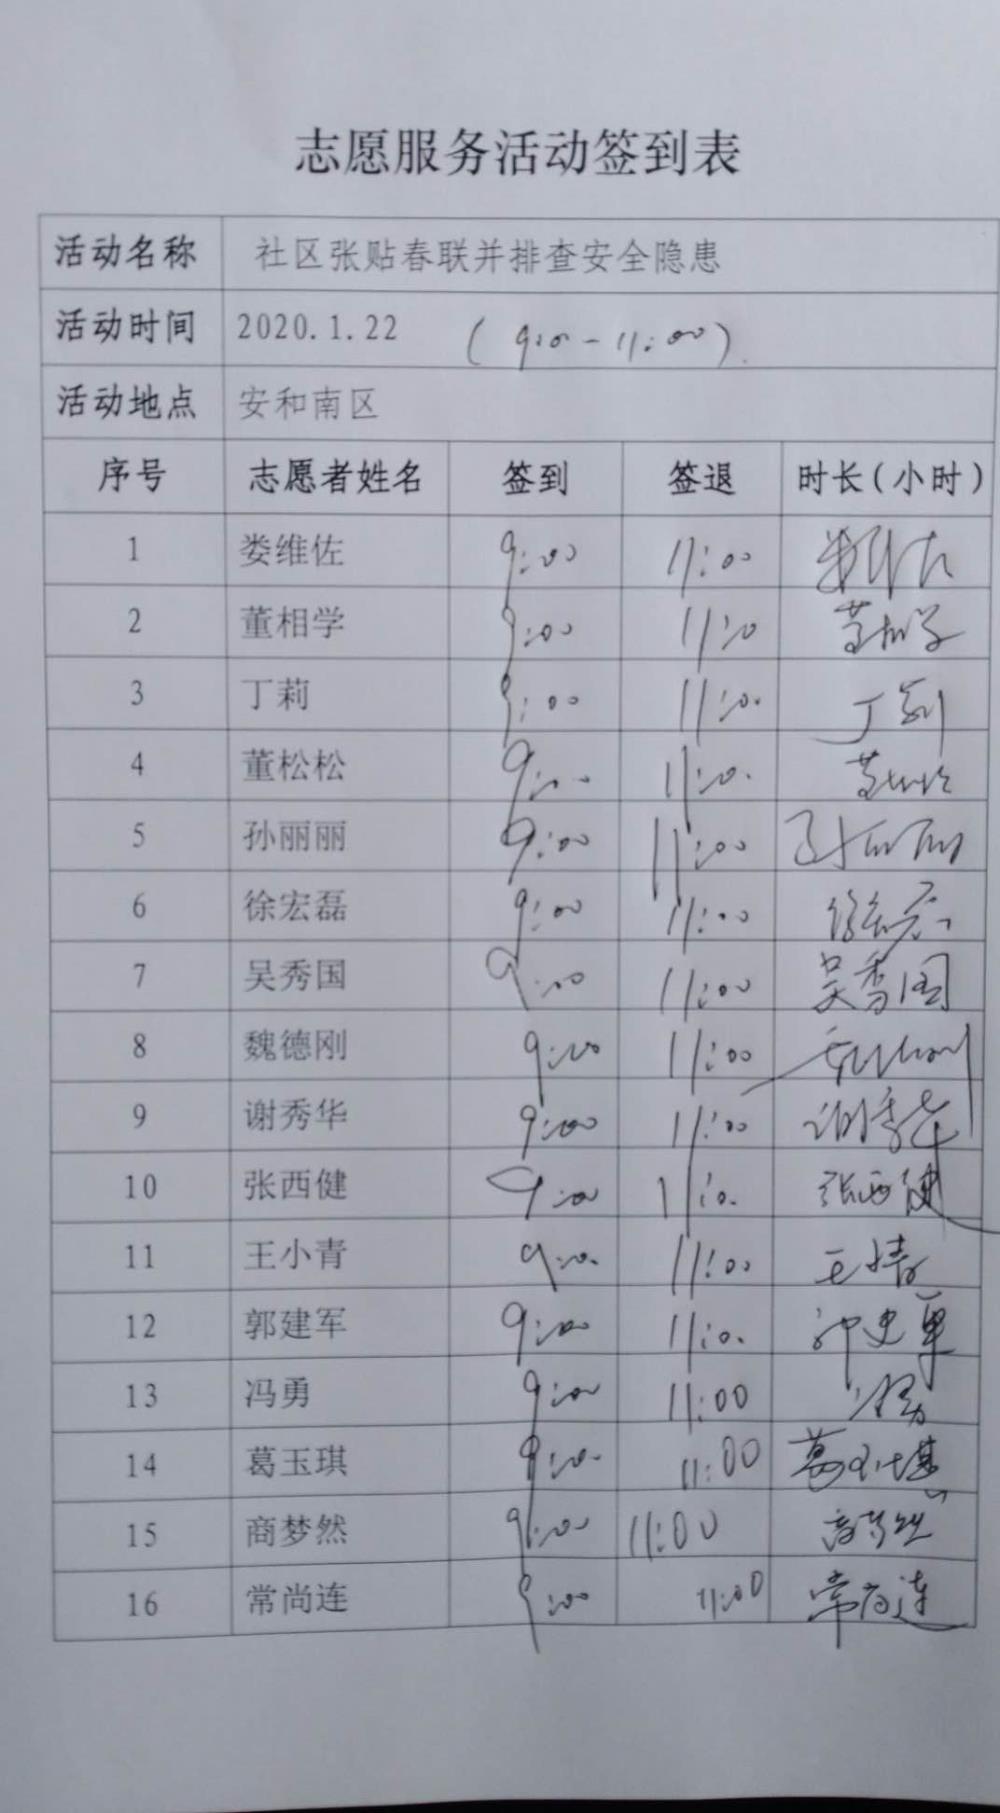 志愿服务活动签到表
活动名称 社区张贴春联并排查安全隐患
活动时间 2020.1.22 (9:00-11:00)
活动地点 安和南区
序号 志愿者姓名 签到 签退 时长(小时)
1 娄维佐 9:00 11:00 娄维佐
2 董相学 9:00 11:00 董相学
3 丁莉 9:00 11:00 丁莉
4 董松松 9:00 11:00 董松松
5 孙丽丽 9:00 11:00 孙丽丽
6 徐宏磊 9:00 11:00 徐宏磊
7 吴秀国 9:00 11:00 吴秀国
8 魏德刚 9:00 11:00
9 谢秀华 9:00 11:00 谢秀华
10 张西健 9:00 11:00 张西健
11 王小青 9:00 11:00
12 郭建军 9:00 11:00 郭建军
13 冯勇 9:00 11:00 冯勇
14 葛玉琪 9:00 11:00 葛玉琪
15 商梦然 9:00 11:00 商梦然
16 常尚连 9:00 11:00 常尚连